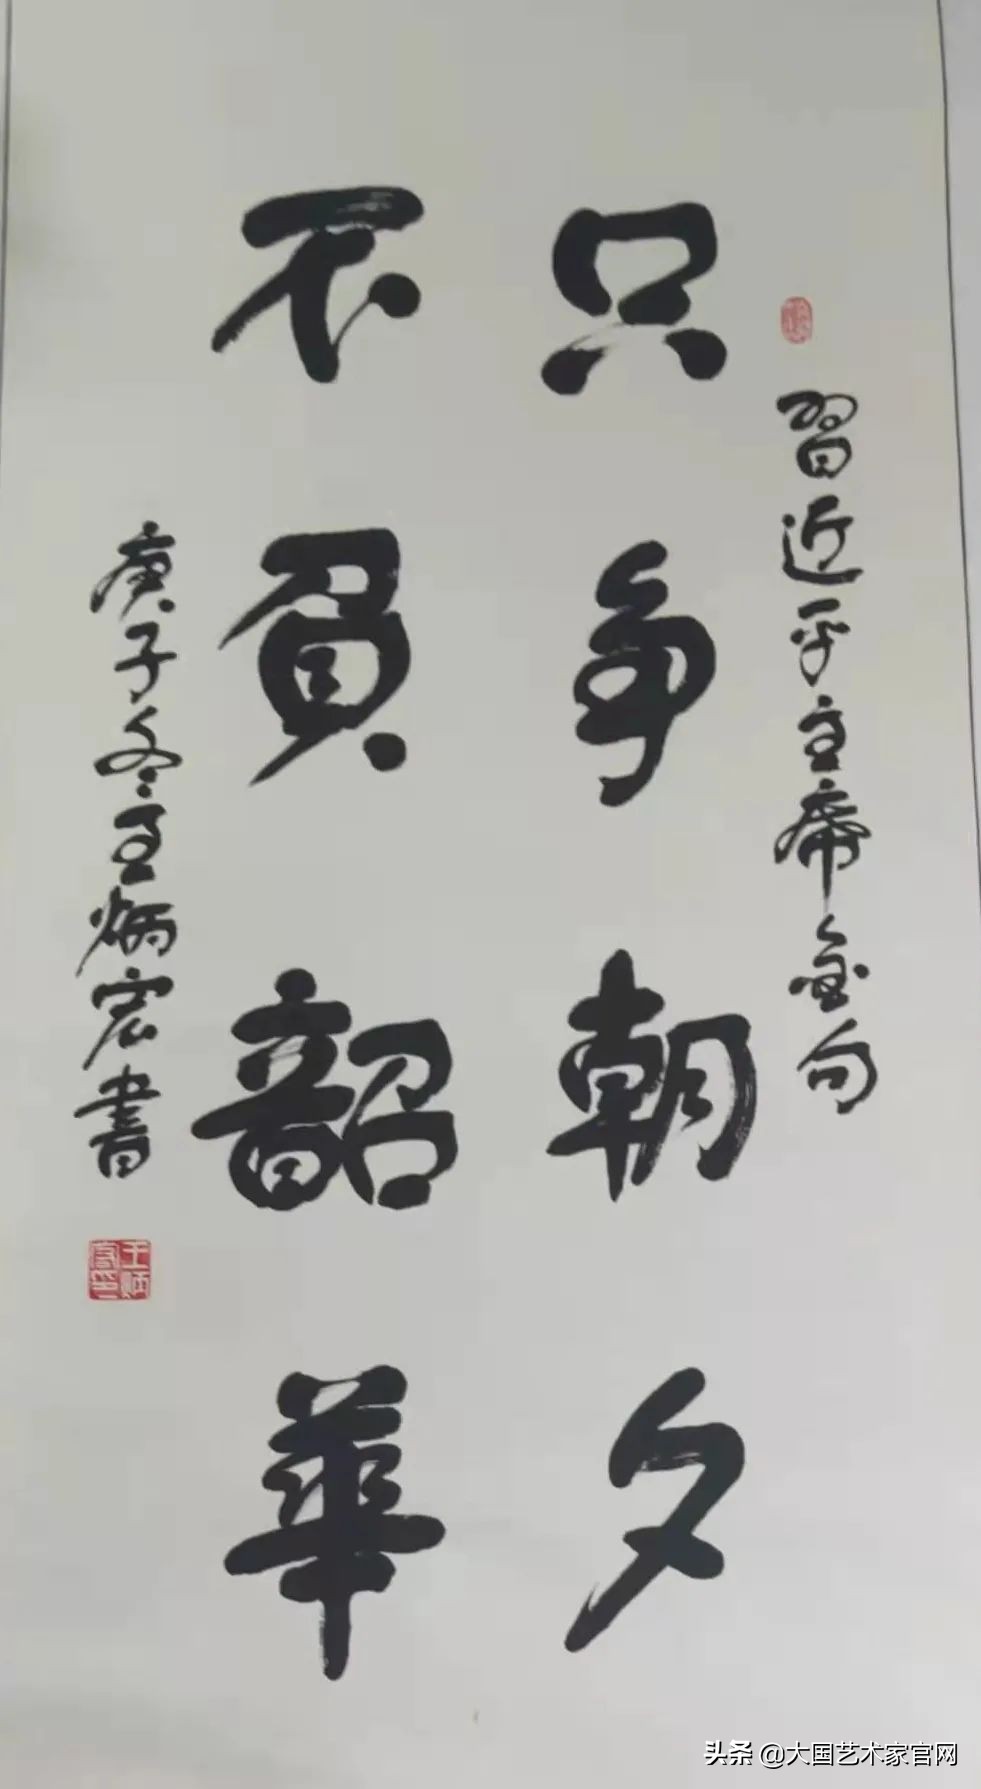 習近平主席金句
只争朝夕
不負韶華
庚子冬王炳宏書
王炳
头条 @大国艺术家官网